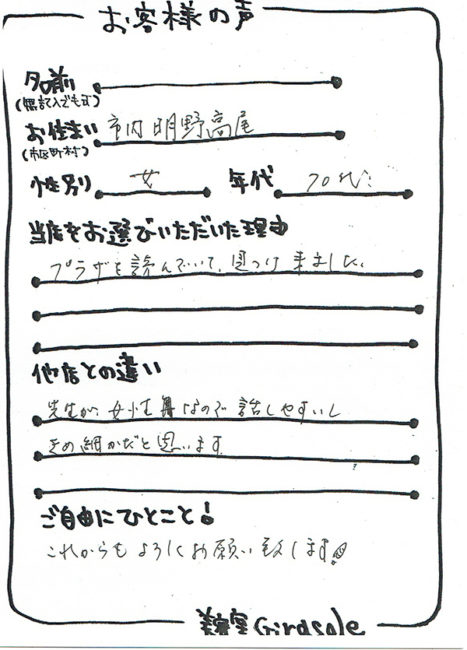 お客様の声
名前
(無記入でも可)
お住まい 市内明野高尾
(市区町村)
性別 女 年代 70代
当店をお選びいただいた理由
プラザを読んでいて、見つけ来ました。
他店との違い
先生が、女性なので話しやすいし
きめ細かだと思います
ご自由にひとこと!
これからもよろしくお願い致します
美容室 Girasole